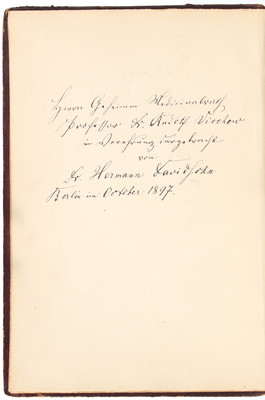 Herrn Geheimen Medicinalrath
Professor Dr. Rudolf Virchow
in Verehrung dargebracht
von
Dr. Hermann Davidsohn
Berlin im October 1897.